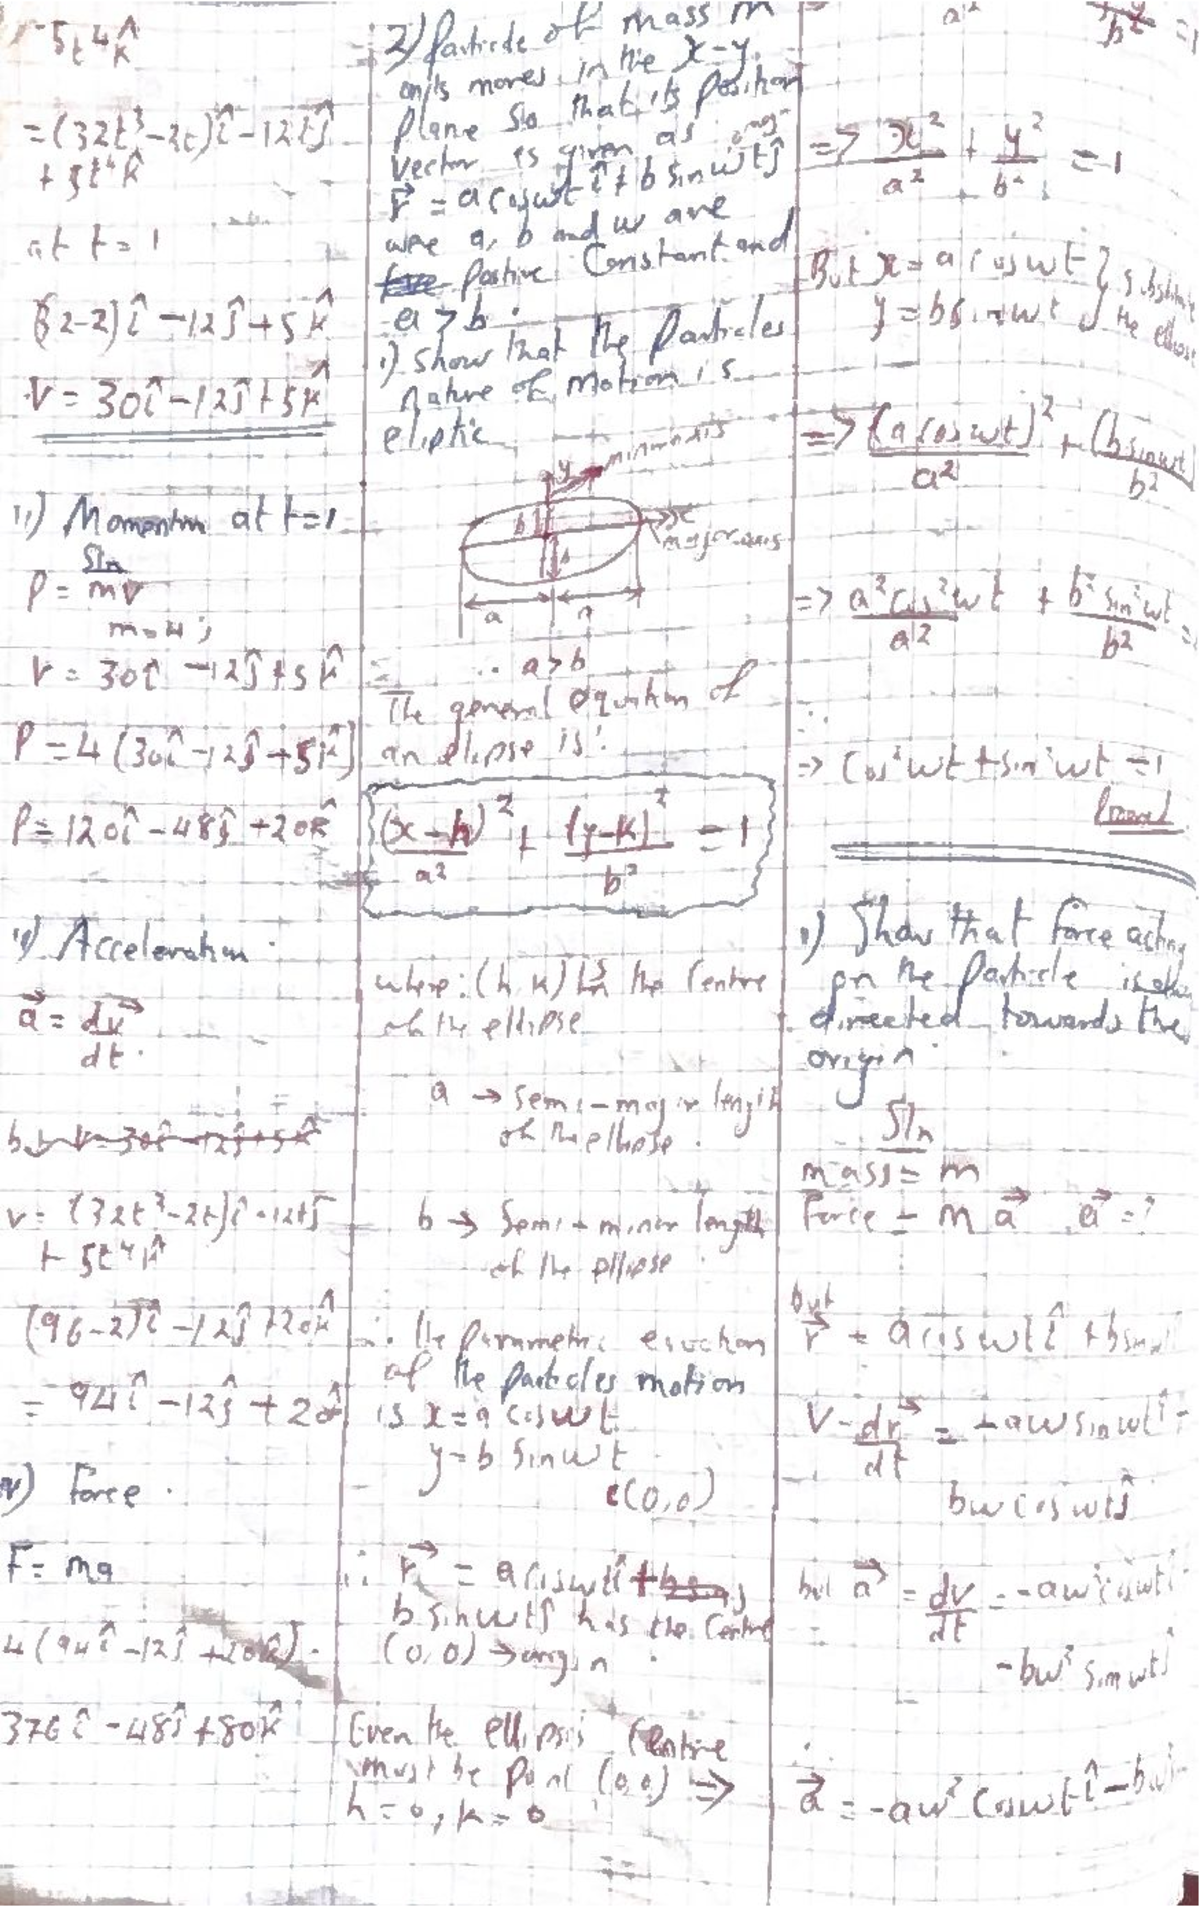 -5t⁴k̂
=(32t³-2t)î-12tĵ
+5t⁴k̂
at t=1
(32-2)î-12ĵ+5k̂
V=30î-12ĵ+5k̂
ii) Momentum at t=1
Sln
P=mv
m=4;
V=30î-12ĵ+5k̂
P=4(30î-12ĵ+5k̂)
P=120î-48ĵ+20k̂
iii) Acceleration.
a⃗=dv⃗/dt.
but v=30î-12ĵ+5k̂
v=(32t³-2t)î-12tĵ
+5t⁴k̂
(96-2)î-12ĵ+20k̂
=94î-12ĵ+20k̂
iv) Force.
F=ma
4(94î-12ĵ+20k̂).
376î-48ĵ+80k̂
2) Particle of mass m
moves in the x-y
plane so that its position
vector is given as
r⃗=a coswtî+b sinwtĵ
were a, b and w are
postive Constant and
a>b.
i) show that the particles
nature of motion is
eliptic
y minor axis
b
x
major axis
a
∴ a>b
The general equation of
an elipse is:
(x-h)²/a²+(y-k)²/b²=1
where: (h,k) is the Centre
of the ellipse
a → Semi-major length
of the ellipse.
b → Semi-minor length
of the ellipse
∴ the parametric equation
of the particles motion
is x=a coswt
y=b sinwt
c(0,0)
∴ r⃗=a coswtî+
b sinwtĵ has the Centre
(0,0) → origin
Even the ellipsis Centre
must be point (0,0) ⇒
h=0, k=0
a² b² =1
⇒ x²/a²+y²/b²=1
But x=a coswt }
y=b sinwt } the ellipse
⇒ (a coswt)²/a²+(b sinwt)/b²
⇒ a²cos²wt/a²+b²sin²wt/b²=
∴
⇒ Cos²wt+sin²wt=1
Proved
ii) Show that force acting
on the Particle is
directed towards the
origin
Sln
mass=m
Force=m a⃗ a⃗=?
but
r⃗=a coswtî+bsinw
V=dr⃗/dt=-aw sinwtî+
bw coswtĵ
but a⃗=dv/dt=-aw²coswtî
-bw²sinwtĵ
∴
a⃗=-aw²Coswtî-bw